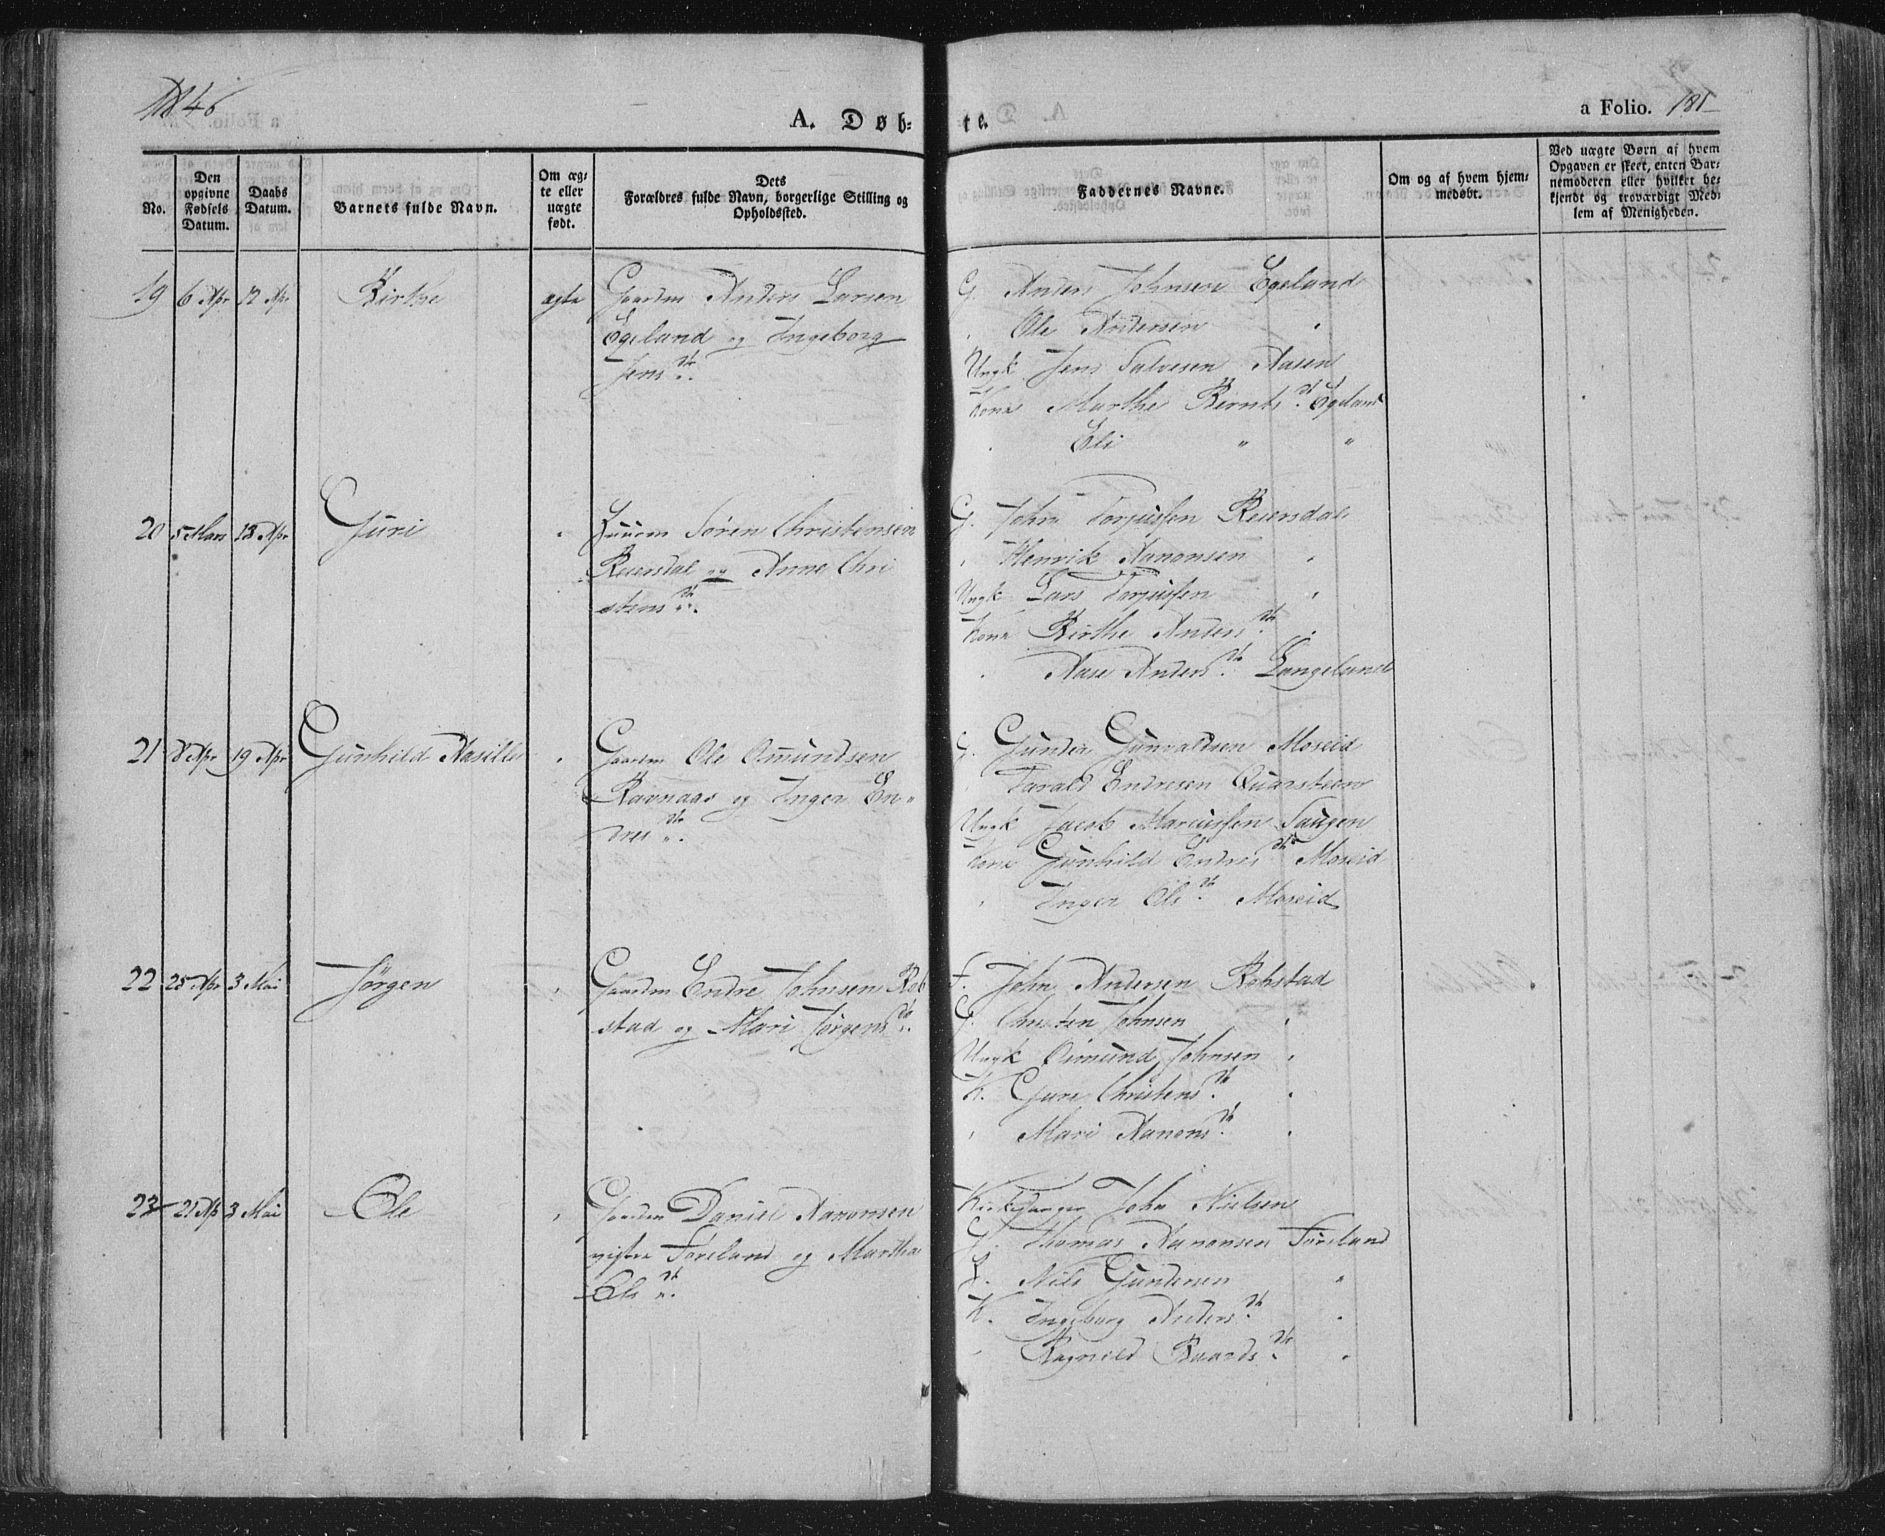 1846
A. Døb-
te.
a Folio. 181
No.
Den opgivne Fødsels Datum.
Daabs Datum.
Barnets fulde Navn.
Om ægte eller uægte født.
Dets Forældres fulde Navn, borgerlige Stilling og Opholdssted.
Faddernes Navne.
Om og af hvem hjemmedøbt.
Ved uægte Børn af hvem Opgaven er skeet, enten Barnemoderen eller hvilket bekjendt og troværdigt Medlem af Menigheden.
19 6 Apr 12 Apr Birthe ægte Gaardm Anders Larsen
Egeland og Ingeborg
Jens dt.
G. Anders Johnsen Egeland
" Ole Andersen "
Ungk Jens Salvesen Aasen
Kone Marthe Bernts dt. Egeland
" Eli " "
20 5 Mars 13 Apr Guri " Huusm Søren Christensen
Reiersdal og Anne Chri
stens dt.
G. John Torjussen Reiersdal
" Henrik Aanonsen "
Ungk Lars Torjussen "
Kone Birthe Anders dt. "
" Aase Anders dt. Langeland
21 8 Apr 19 Apr Gunhild Aasille " Gaardm Ole Omundsen
Ravnaas og Inger En-
dres dt.
G. Gunder Gunvaldsen Moseid
" Tarald Endresen Quarsteen
Ungk Jacob Marcussen Saugen
Kone Gunhild Endres dt. Moseid
" Inger Ols dt. Moseid
22 25 Apr 3 Mai Jørgen " Gaardm Endre Johnsen Rob
stad og Mari Jørgens dt.
F. John Andersen Robstad
G. Christen Johnsen "
Ungk Omund Johnsen "
K. Gure Christens dt. "
" Mari Aanons dt. "
23 21 Ap 3 Mai Ole " Gaardm Daniel Aanonsen
Føreland og Marthe
Ols dt.
Kirkesanger John Nielsen
G. Thomas Aanonsen Føreland
G. Nils Gundersen "
K. Ingeborg Anders dt. "
" Ragnild Baards dt. "